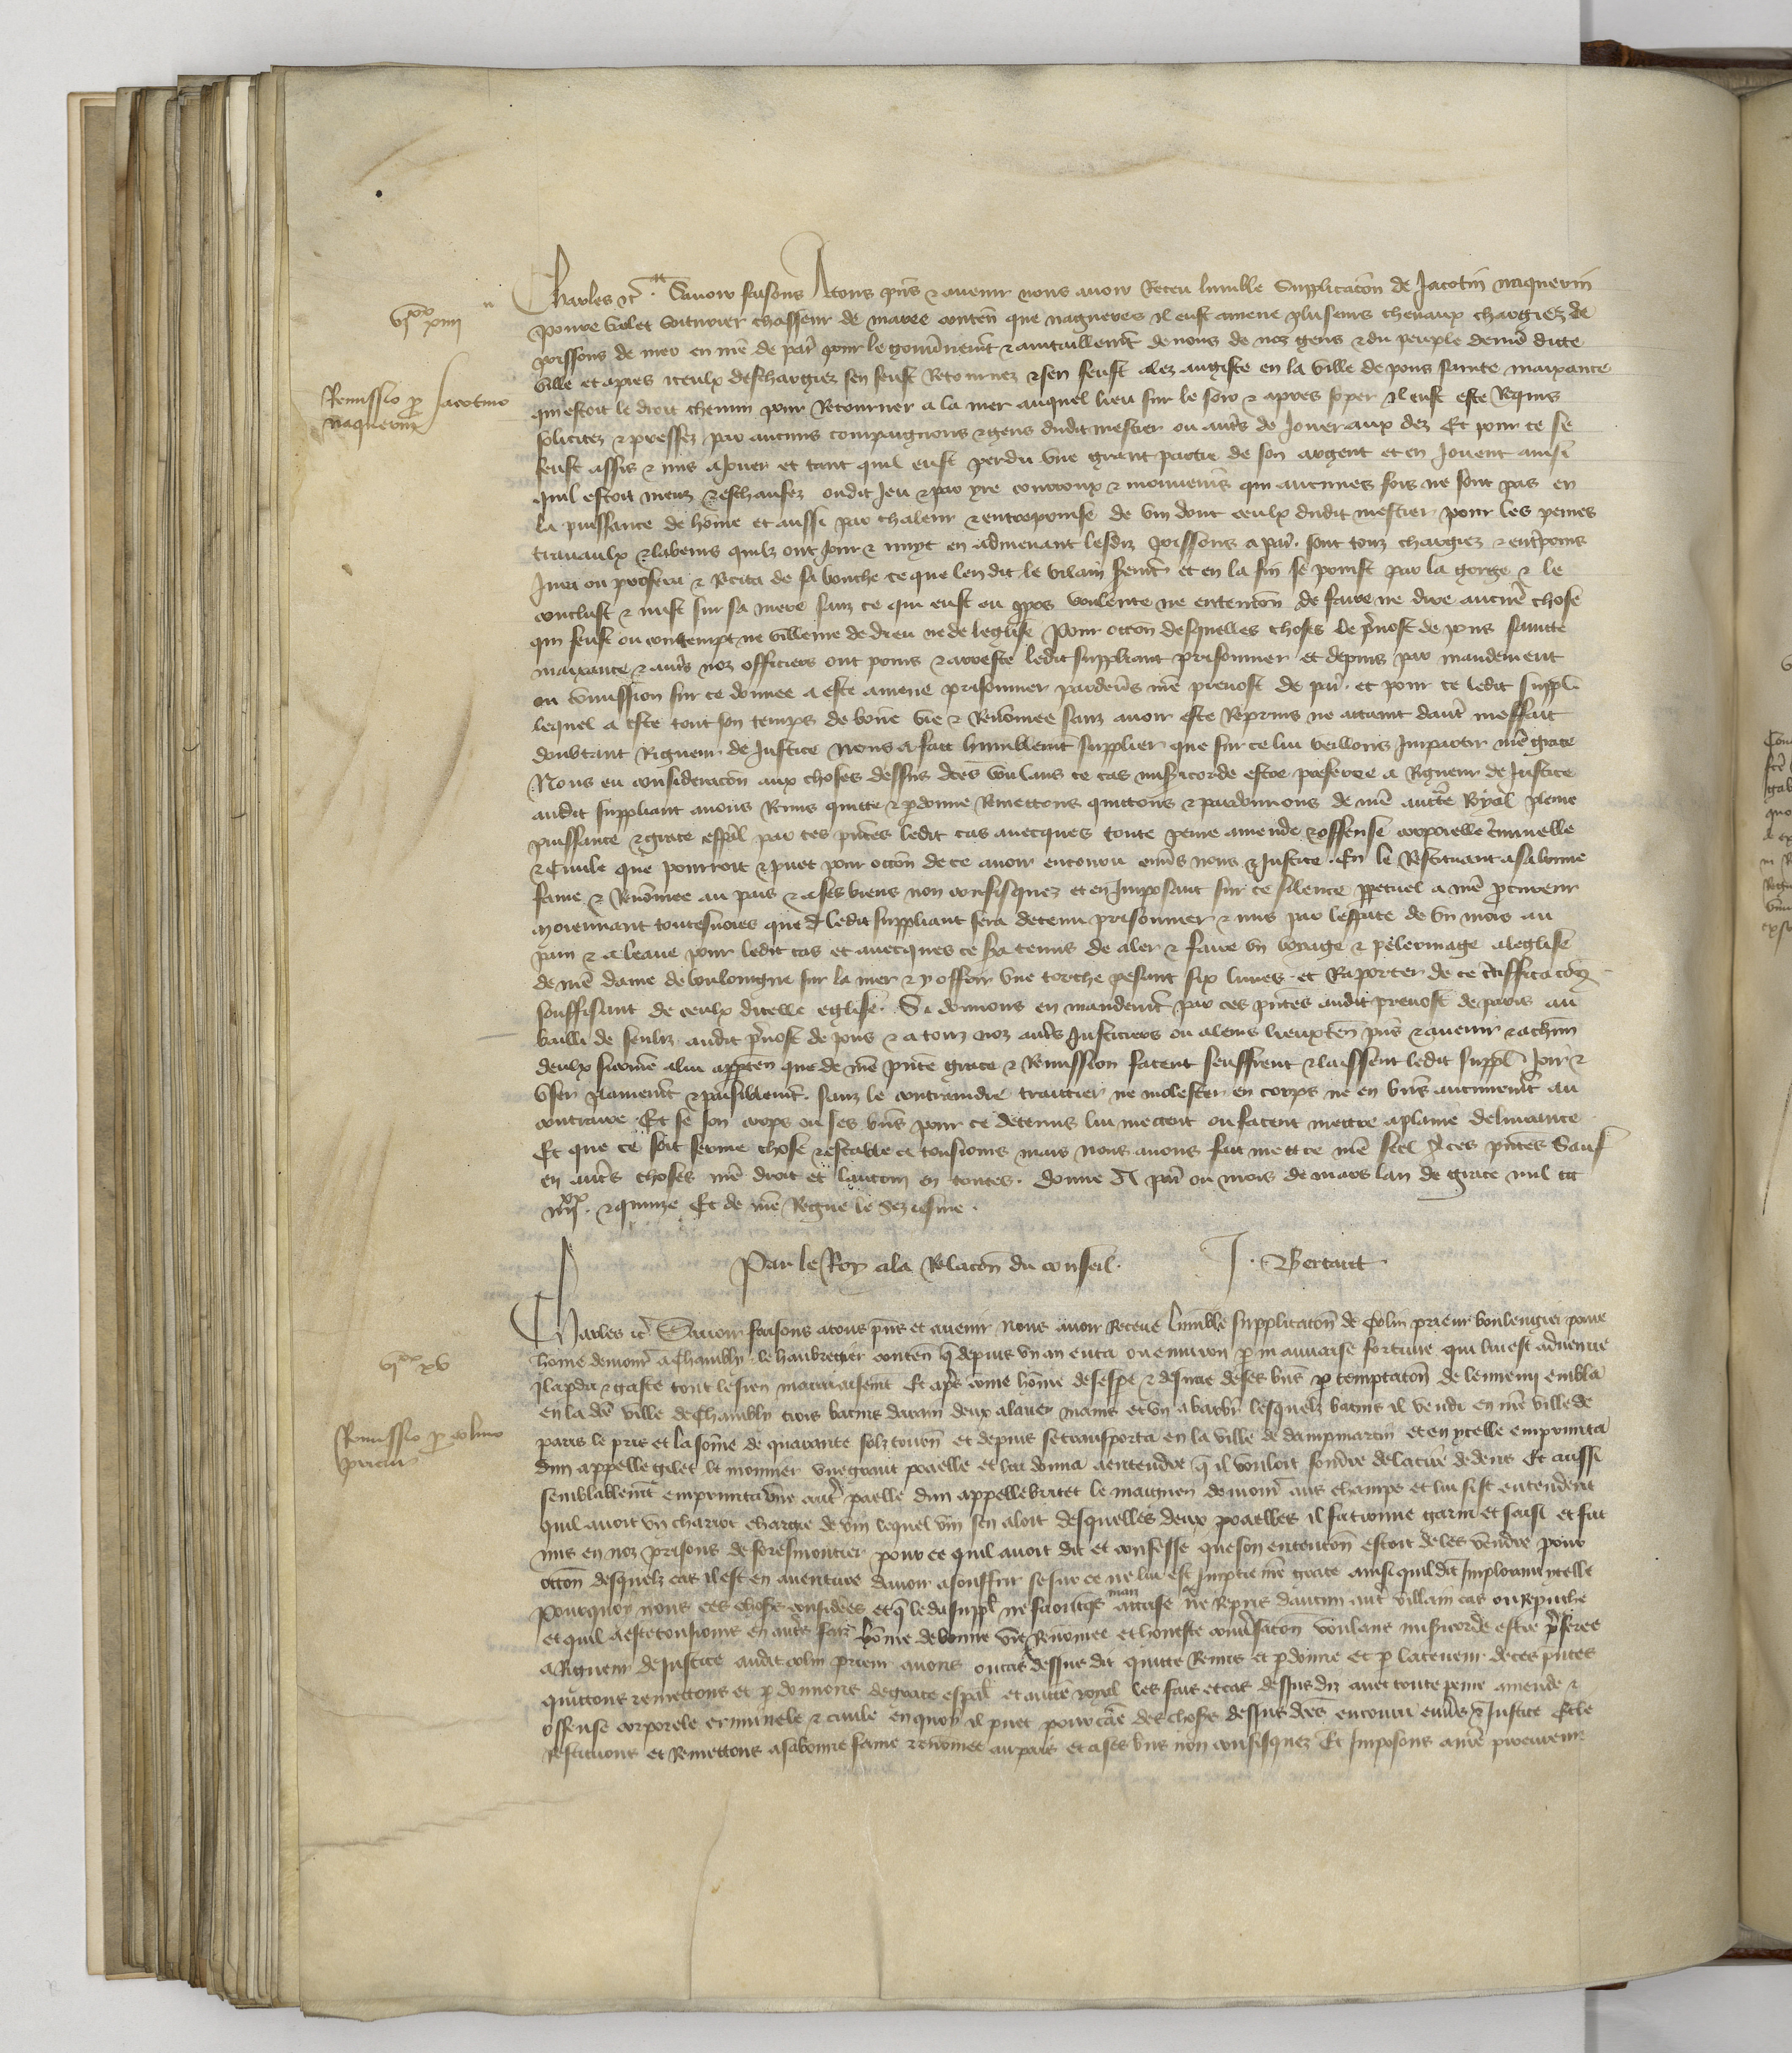 Charles etc. Savoir faisons A tous pñs & avenir nous avoir Receu lumble Supplicacõn de Jacotin naquerin
vjxx xiiij
povre varlet voiturier chasseur de maree contenẽ que nagueres il eust amene plusieurs chevaux chargiez de
poissons de mer en nr̃e de par̃ pour le gouvernemt̃ & avitaillemt̃ de nous de noz gens & du peuple de nr̃e dicte
ville et apres iceulx deschargiez sen feust Retournez & sen feust alez au giste en la ville de pons sainte maixance
Remissio p̱ Jacotino
naquerin
qui estoit le droit chemin pour Retourner a la mer auquel lieu sur le soir & apres soper il eust este Requis
solicitez & pressez par aucuns compaignons & gens dudit mestier ou autr̃s de Jouer aux dez Et pour ce se
feust assis & mis a Jouer et tant quil eust perdu une grant partie de son argent et en Jouent ainsi
quil estoit meuz & eschaufez oudit Jeu & par yre courroux & mouvemñs qui aucunes fois ne sont pas en
la puissance de hõme et aussi par chaleur & entreprinse de vin dont ceulx dudit mestier pour les peines
travaulx & labeurs quilz ont jour & nuyt en admenant lesdiz poissons a par̃. sont touz chargiez & entrepriñs
Jura ou profera & Recita de sa bouche ce que len dit le vilain seremt̃ et en la fin se prinst par la gorge & le
conclust & mist sur sa mere sanz ce qui eust ou ppos voulente ne entencõn de faire ne dire aucune chose
qui feust ou contempt ne villenie de dieu ne de leglise Pour occõn desquelles choses le p̃vost de pons sainte
maixance & autr̃s noz officiers ont prins & arreste ledit suppliant prisonnier et depuis par mandement
ou cõmission sur ce donnee a este amene prisonnier pardevs̃ nr̃e prevost de par̃. et pour ce ledit suppl̃
lequel a este tout son temps de bonne vie & Renõmee sanz avoir este Reprins ne attaint dautr̃ meffait
doubtant Rigueur de Justice Nous a fait humblemt̃ supplier que sur ce lui veillons Impartir nr̃e grace
Nous eu consideracõn aux choses dessus dc̃es voulans ce cas misericorde estre preferee a Rigueur de Justice
audit suppliant avons Remis quitte & p̱donne Remettons quittons & pardonnons de nr̃e auctr̃e Royal pleine
puissance & grace esp̃al par ces pñtes ledit cas avecques toute peine amende & offense corporelle c̃minelle
& civile que pourroit & puet pour occõn de ce avoir encouru env̾s nous & Justice. En le Restituant a sa bonne
fame & Renõmee au pais & a ses biens non confisquez et en Imposant sur ce silence ppetuel a nr̃e procureur
moiennant toutesvoies que ledit suppliant sera detenu prisonnier & mis par lespace de un mois au
pain & a leaue pour ledit cas et avecques ce sera tenus de aler & faire un voiage & pelerinage a leglise
de nr̃e dame de bouloingne sur la mer & y offrir une torche pesant six livres. et Raporter de ce c̃tifficacõn
souffisant de ceulx dicelle eglise. Si donnons en mandemt̃ par ces pñtes audit prevost de paris au
bailli de senliz audit p̃vost de pons & a touz noz autr̃s Justiciers ou a leurs lieuxteñ pñs & avenir & a chũn
deulx sicomme a lui apptenr̃ que de nr̃e pñte grace & Remission facent seuffrent & laissent ledit suppl̃ Joir &
user plainemt̃ & paisiblemt̃. sanz le contraindre traictier ne molester en corps ne en bñs aucunemt̃ au
contraire. Et se son corps ou ses bñs pour ce detenus lui mettent ou facent mettre a plaine delivrance
Et que ce soit ferme chose & estable a tousjours mais nous avons fait mettre nr̃e seel a ces pñtes Sauf
en autr̃s choses nr̃e droit et lautrui en toutes. donne A par̃ ou mois de mars lan de grace mil ccc
iiijxx. & quinze Et de nr̃e Regne le seziesme.
Par le Roy a la Relacõn du conseil. J. Bertaut
Charles etc. Savoir faisons a tous pñs et avenir Nous avoir Receue lumble supplicacõn de Colin prieur boulengier povre
vjxx xv
hõme demour̃ a Chambly le haubergier conteñ q̃ depuis un an enca ou environ p̱ mauvaise fortune qui lui est advenue
Il a pdu & gaste tout le sien mauvaisemt̃ Et apr̃s cõme hõme desespere & desnue de ses bñs p̱ temptacõn de lennemi embla
en la dc̃e ville de Chambly trois bacins darain deux a laver mains et un a barbr̃ lesquelz bacins il vendi en nr̃e ville de
Remissio p̱ colino
prieur
paris le pris et la sõme de quarante solz tourñ et depuis se transporta en la ville de dampmartin et en ycelle emprunta
dun appelle gilet le monnier une grant paelle et lui donna a entendre q̃ il vouloit fondre de la cire dedens Et aussi
semblablemt̃ emprunta une autr̃ paelle dun appelle britet le maignen demour̃ aus champs et lui fist entendent
quil avoit un chariot chargie de vin lequel vin sen aloit desquelles deux paelles il fu trouve garni et saisi et fut
mis en noz prisons de foresmontier pour ce quil avoit dit et confesse que son entencõn estoit de les vendre pour
occõn desquelz cas il est en aventure davoir a souffrir se sur ce ne lui est Imptie nr̃e grace ainsi quil dit Implorant ycelle
Pourquoy nous ces choses considerees et q̃ le dit suppl̃ ne fu oncqs̃ mais actaise ne Repris daucun autr̃ villain cas ou Reprouche
et quil a este tousjours en autr̃s faiz hõme de bonne vie Renõmee et honeste conv̾sacõn voulans mis̾icorde estre p̃feree
a Rigueur de Justice audit colin prieur avons ou cas dessus dit quitte Remis et p̱donne et p̱ la teneur de ces pñtes
quittons remettons et p̱donnons de grace esp̃al et auctr̃e royal les fais et cas dessus diz avec toute peine amende &
offense corporele criminele & civile en quoy il puet pour cãe des choses dessus dc̃es encouru env̾s nous & Justice Et le
restituons et Remettons a sa bonne fame renõmee au pais et a ses bñs non confisquez Et Imposons a nr̃e procureur